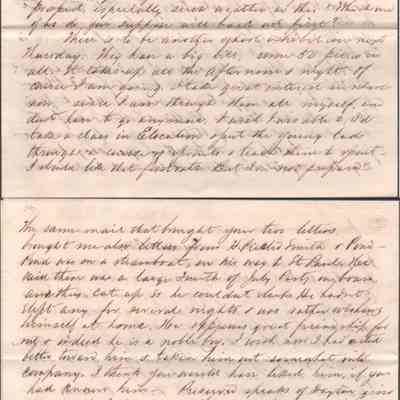 prospect, especially since matter in this. Which one
of us do you suppose will back out first?
There is to be another school exhibition next
Thursday. They have a big bill, some 50 pieces in
all. It takes up all the afternoon & night. Of
course I am going. I take great interest in school
now, since I am through them all myself, and
dont have to go any more. I wish I was able &, I'd
take a class in Elocution & put the young lads
through a course of sprouts & teach them to spout.
I should like that first rate but I'm not prepared
The same mail that brought your two letters
brought me also letters from Smith & Pond -
Pond was on a steamboat, on his way to St Paul. He
said there was a large Fourth of July Party on board
and they cut up so he couldnt sleep. He hadn't
slept any for several nights & was rather wishing
himself at home. He expresses great friendship for
me & indeed he is a noble boy. I wish I had acted
better toward him & taken him out somewhat into
company. I think you would have liked him, if you
had known him - speaks of Dayton, gives